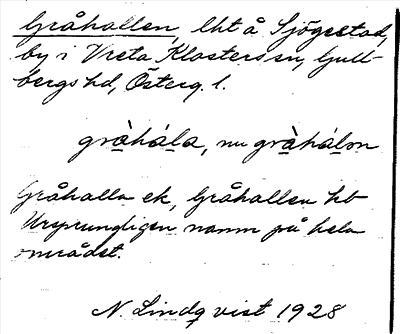 Gråhallen, lht å Sjögestad,
by i Vreta Klosters sn, Gull-
bergs hd, Österg. l.
gràhála, nu gràhálon
Gråhalla ek, Gråhallen hb
Ursprungligen namn på hela
området.
N. Lindqvist 1928